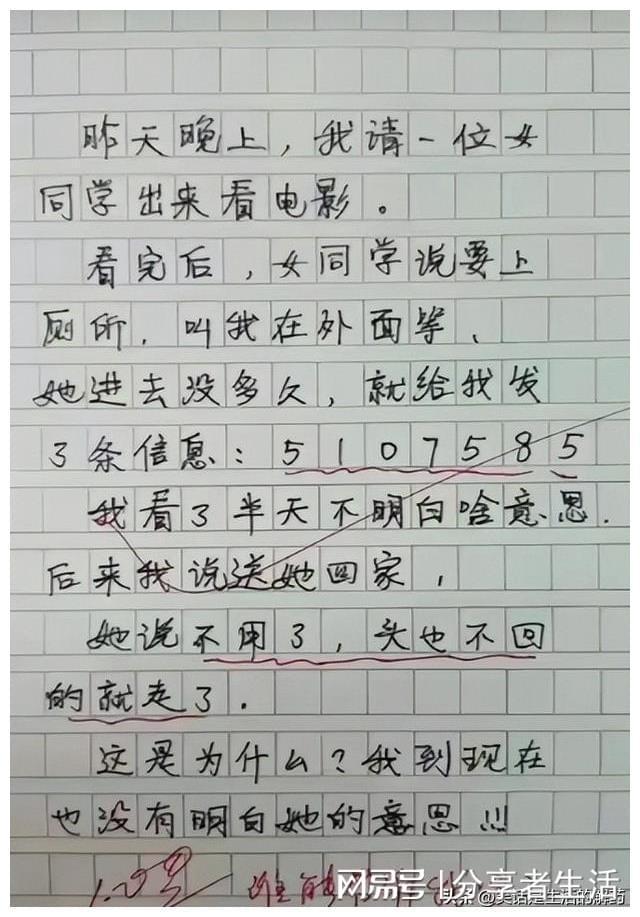 昨天晚上，我请一位女
同学出来看电影。
看完后，女同学说要上
厕所，叫我在外面等、
她进去没多久，就给我发
了条信息：51075 85
我看了半天不明白啥意思.
后来我说送她回家，
她说不用了，头也不回
的就走了.
这是为什么？我到现在
也没有明白她的意思!!!
谁能
网易号|分享者生活
头条@美话是生活的解药